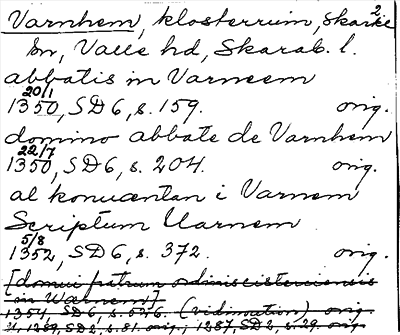 Varnhem, klosterruin, Skarke 2
sn, Valle hd, Skarab. l.
abbatis in Varneem
1350 20/1, SD 6, s. 159. orig.
domino abbate de Varnhem
1350 22/7, SD 6, s. 204. orig.
al konuæntan i Varnem
Scriptum Uarnem
1352 5/8, SD 6, s. 372. orig.
[domui patrum ordinis cisterciensis
in Warnem]
1354, SD 6, s. (vidimation) orig.
1289, SD 2, s. 81. orig., 1287, SD 2, s. 29. orig.